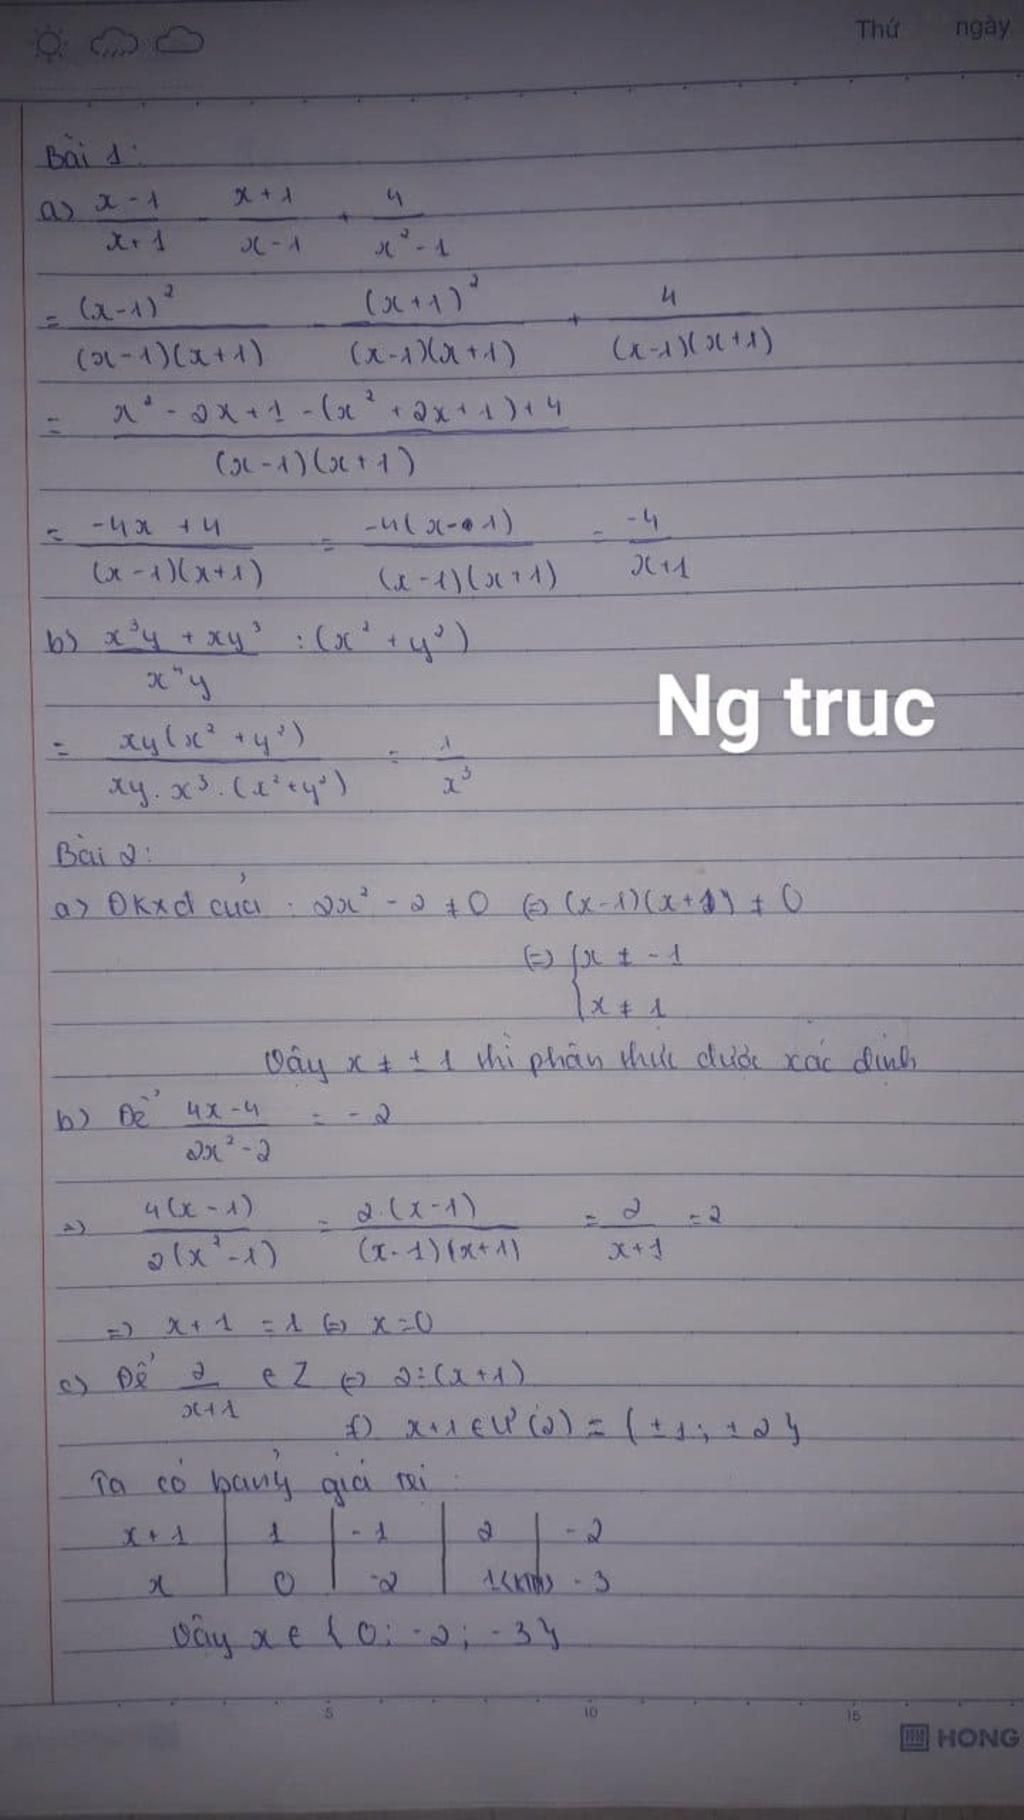 Thứ ngày
Bài 1:
a) x-1/x+1 - x+1/x-1 + 4/x²-1
= (x-1)²/(x-1)(x+1) - (x+1)²/(x-1)(x+1) + 4/(x-1)(x+1)
= x²-2x+1-(x²+2x+1)+4/(x-1)(x+1)
= -4x+4/(x-1)(x+1) = -4(x-1)/(x-1)(x+1) = -4/x+1
b) x³y+xy³/x⁴y : (x²+y²)
Ng truc
= xy(x²+y²)/xy.x³.(x²+y²) = 1/x³
Bài 2:
a) ĐKxđ của : 2x²-2≠0 (=) (x-1)(x+1)≠0
(=) {x≠-1
x≠1
Vậy x≠±1 thì phân thức được xác định
b) Để 4x-4/2x²-2 = -2
=) 4(x-1)/2(x²-1) = 2.(x-1)/(x-1)(x+1) = 2/x+1 = 2
=) x+1 = 1 (=) x=0
c) Để 2/x+1 ∈ Z (=) 2⋮(x+1)
x+1 ∈ Ư(2) = {±1; ±2}
Ta có bảng giá trị:
x+1 | 1 | -1 | 2 | -2
x | 0 | -2 | 1(ktm) -3
Vậy x ∈ {0; -2; -3}
5 10 15
HONG